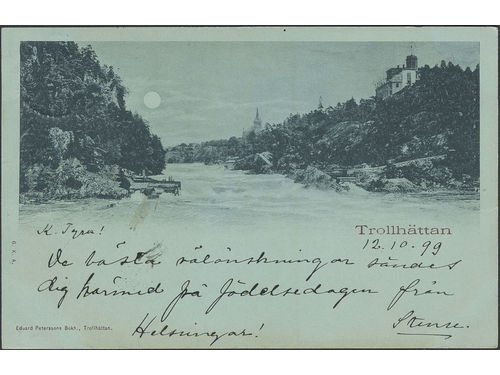 Trollhättan
K. Tyra!
12.10.99
De bästa välönskningar sändes
dig härmed på födelsedagen från
Helsningar!
Eduard Peterssons Bokh., Trollhättan.